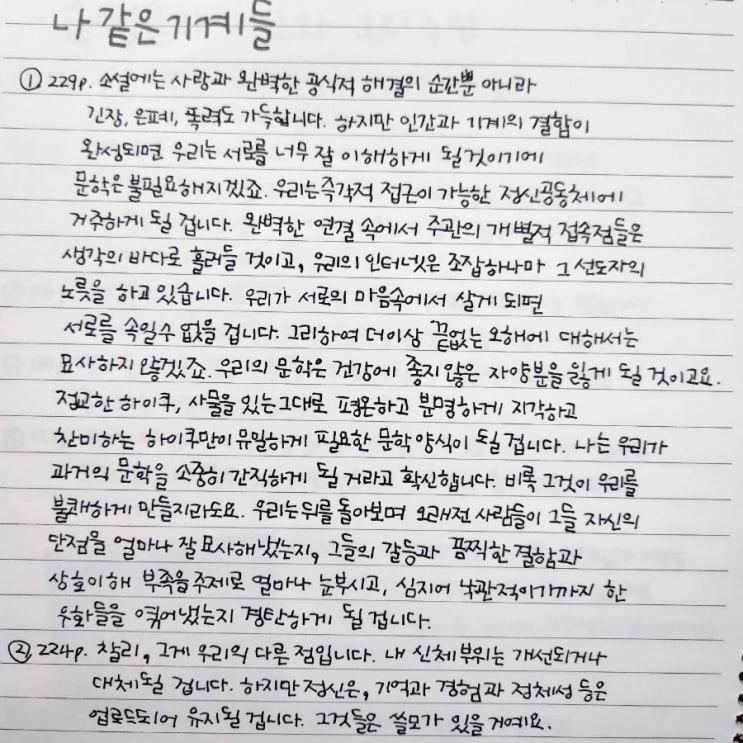 나 같은 기계들
① 229p. 소설에는 사랑과 완벽한 공식적 해결의 순간뿐 아니라
긴장, 은폐, 폭력도 가득합니다. 하지만 인간과 기계의 결합이
완성되면 우리는 서로를 너무 잘 이해하게 될것이기에
문학은 불필요해지겠죠. 우리는 즉각적 접근이 가능한 정신공동체에
거주하게 될 겁니다. 완벽한 연결 속에서 주관의 개별적 접속점들은
생각의 바다로 흘러들 것이고, 우리의 인터넷은 조잡하나마 그 선도자의
노릇을 하고 있습니다. 우리가 서로의 마음속에서 살게 되면
서로를 속일수 없을 겁니다. 그리하여 더이상 끝없는 오해에 대해서는
묘사하지 않겠죠. 우리의 문학은 건강에 좋지않은 자양분을 잃게 될 것이고요.
정교한 하이쿠, 사물을 있는그대로 평온하고 분명하게 지각하고
찬미하는 하이쿠만이 유일하게 필요한 문학 양식이 될 겁니다. 나는 우리가
과거의 문학을 소중히 간직하게 될 거라고 확신합니다. 비록 그것이 우리를
불쾌하게 만들지라도요. 우리는 뒤를 돌아보며 오래전 사람들이 그들 자신의
단점을 얼마나 잘 묘사해냈는지, 그들의 갈등과 끔찍한 결함과
상호이해 부족을 주제로 얼마나 눈부시고, 심지어 낙관적이기까지 한
우화들을 엮어냈는지 경탄하게 될 겁니다.
② 224p. 찰리, 그게 우리의 다른 점입니다. 내 신체부위는 개선되거나
대체될 겁니다. 하지만 정신은, 기억과 경험과 정체성 등은
업로드되어 유지될 겁니다. 그것들은 쓸모가 있을 거예요.